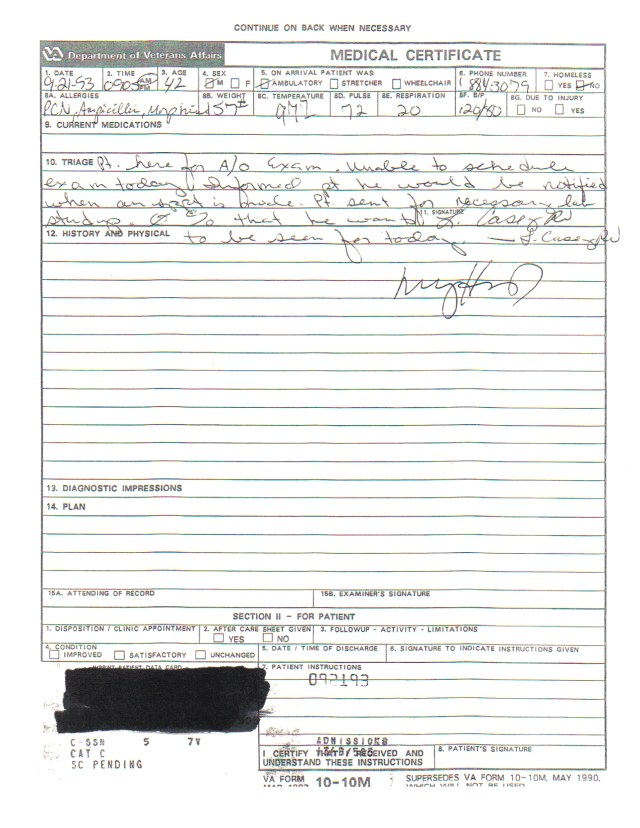 CONTINUE ON BACK WHEN NECESSARY
VA Department of Veterans Affairs
MEDICAL CERTIFICATE
1. DATE 2. TIME 3. AGE 4. SEX 5. ON ARRIVAL PATIENT WAS: 6. PHONE NUMBER 7. HOMELESS
9-21-93 0905 AM PM 42 M F AMBULATORY STRETCHER WHEELCHAIR ( 884-3079 YES NO
8A. ALLERGIES 8B. WEIGHT 8C. TEMPERATURE 8D. PULSE 8E. RESPIRATION 8F. B/P 8G. DUE TO INJURY
PCN, Ampicillin, Morphine 157# 97 72 20 120/80 NO YES
9. CURRENT MEDICATIONS
10. TRIAGE Pt. here for A/O Exam. Unable to schedule
exam today. Informed pt he would be notified
when an appt is made. Pt sent for necessary lab
studys. c/o that he wants
11. SIGNATURE
J. Casey RN
12. HISTORY AND PHYSICAL to be seen for today. — J. Casey RN
13. DIAGNOSTIC IMPRESSIONS
14. PLAN
15A. ATTENDING OF RECORD 15B. EXAMINER'S SIGNATURE
SECTION II - FOR PATIENT
1. DISPOSITION / CLINIC APPOINTMENT 2. AFTER CARE SHEET GIVEN 3. FOLLOWUP - ACTIVITY - LIMITATIONS
YES NO
4. CONDITION 5. DATE / TIME OF DISCHARGE 6. SIGNATURE TO INDICATE INSTRUCTIONS GIVEN
IMPROVED SATISFACTORY UNCHANGED
IMPRINT PATIENT DATA CARD 7. PATIENT INSTRUCTIONS
092193
C-SSN 5 7V
CAT C
SC PENDING
ADMISSIONS
I CERTIFY THAT I RECEIVED AND
UNDERSTAND THESE INSTRUCTIONS
8. PATIENT'S SIGNATURE
VA FORM 10-10M SUPERSEDES VA FORM 10-10M, MAY 1990,
MAR 1992 WHICH WILL NOT BE USED